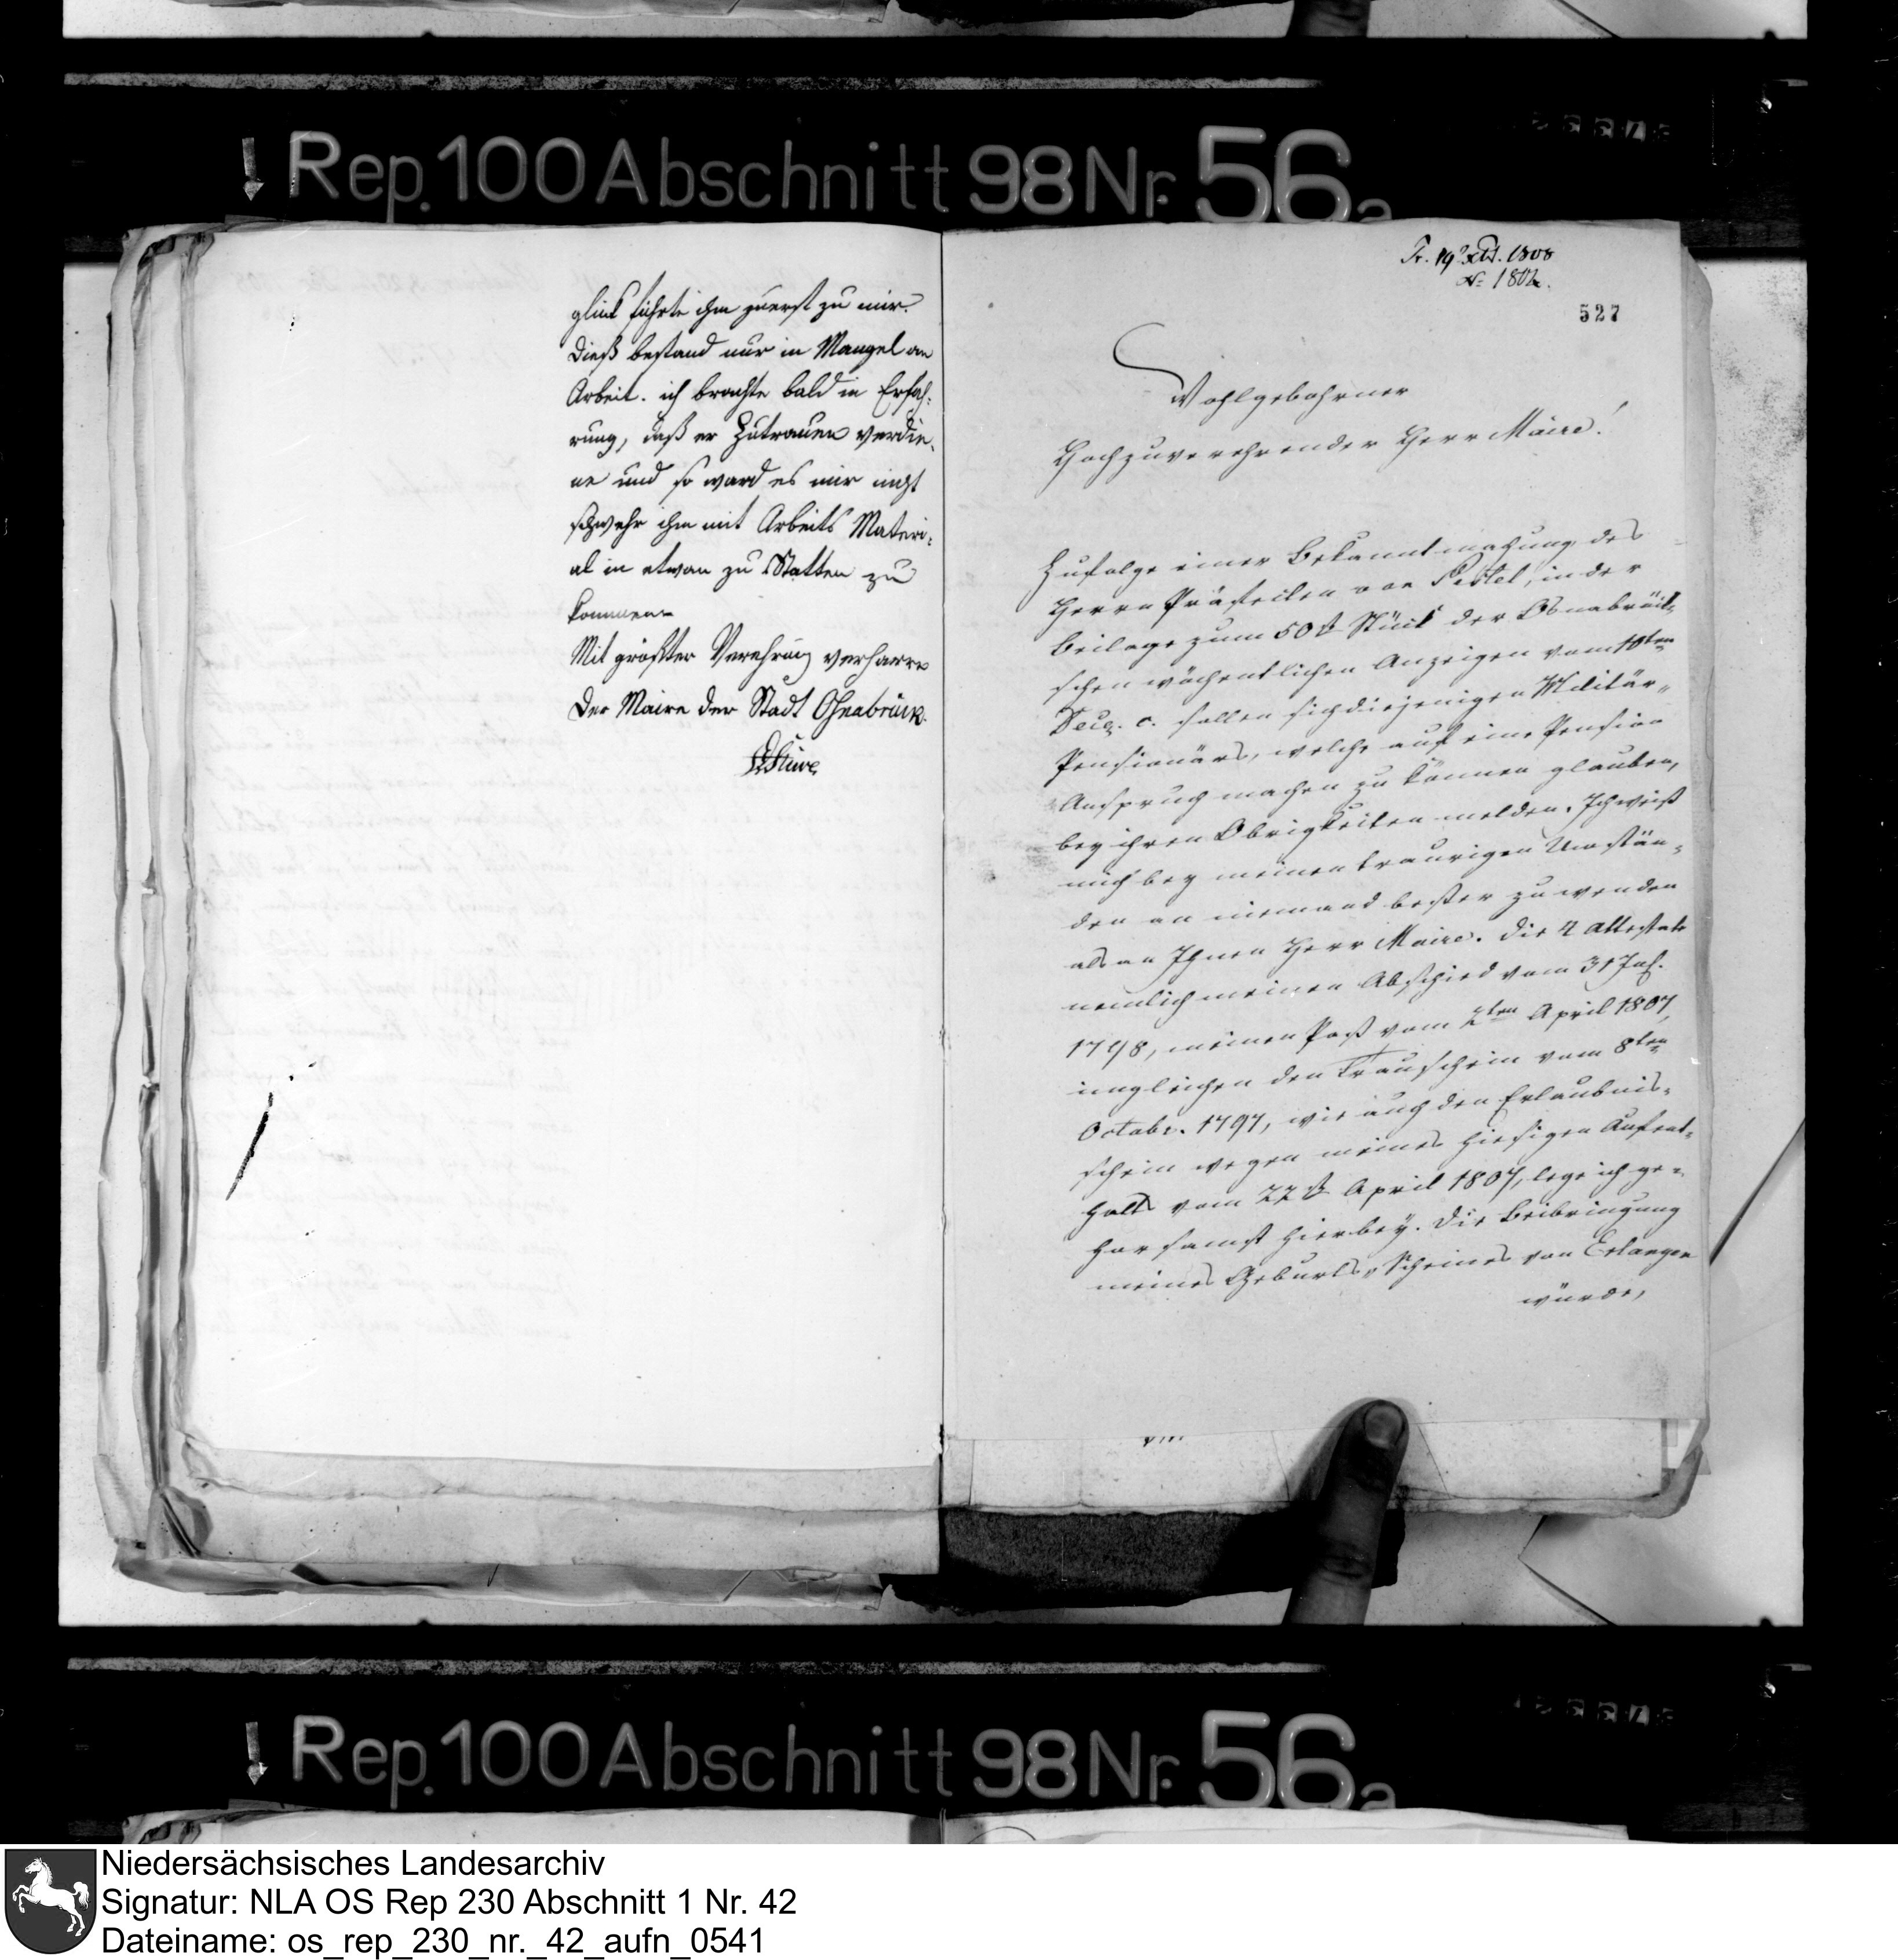 Rep. 100 Abschnitt 98 Nr. 56a
glück führte ihn zuerst zu mir.
Dieß bestand nur in Mangel an
Arbeit. ich brachte bald in Erfah-
rung, daß er Zutrauen verdie-
ne und so ward es mir nicht
schwehr ihm mit Arbeits Materi-
al in etwan zu Statten zu
kommen
Mit größter Verehrung verharre
Der Maire der Stadt Osnabrück.
Stüve
Pr. 19 Xbr. 1808
No 1802.
527
Wohlgebohrner
Hochzuverehrender Herr Maire!
Zufolge einer Bekanntmachung des
Herrn Präfecten von Pestel, in der
Beilage zum 50st Stück der Osnabrück-
schen wöchentlichen Anzeigen vom 10ten
Decbr. c. sollen sich diejenigen Militär-
Pensionärs, welche auf eine Pension
Anspruch machen zu können glauben,
bey ihren Obrigkeiten melden. Ich weiß
mich bey meinen traurigen Umstän-
den an niemand beßer zu wenden
als an Ihnen Herr Maire. Die 4 Attestate
nemlich meinen Abschied vom 31
1798, meinen Paß vom 2ten April 1807,
imgleichen den Trauschein vom 8ten
Octobr. 1797, wie auch den Erlaubnis-
schein wegen meines hiesigen Aufent-
halts vom 22st April 1807, lege ich ge-
horsamst hierbey. Die Beibringung
meines Geburts-Scheines von Erlangen
würde,
Rep. 100 Abschnitt 98 Nr. 56a
Niedersächsisches Landesarchiv
Signatur: NLA OS Rep 230 Abschnitt 1 Nr. 42
Dateiname: os_rep_230_nr._42_aufn_0541